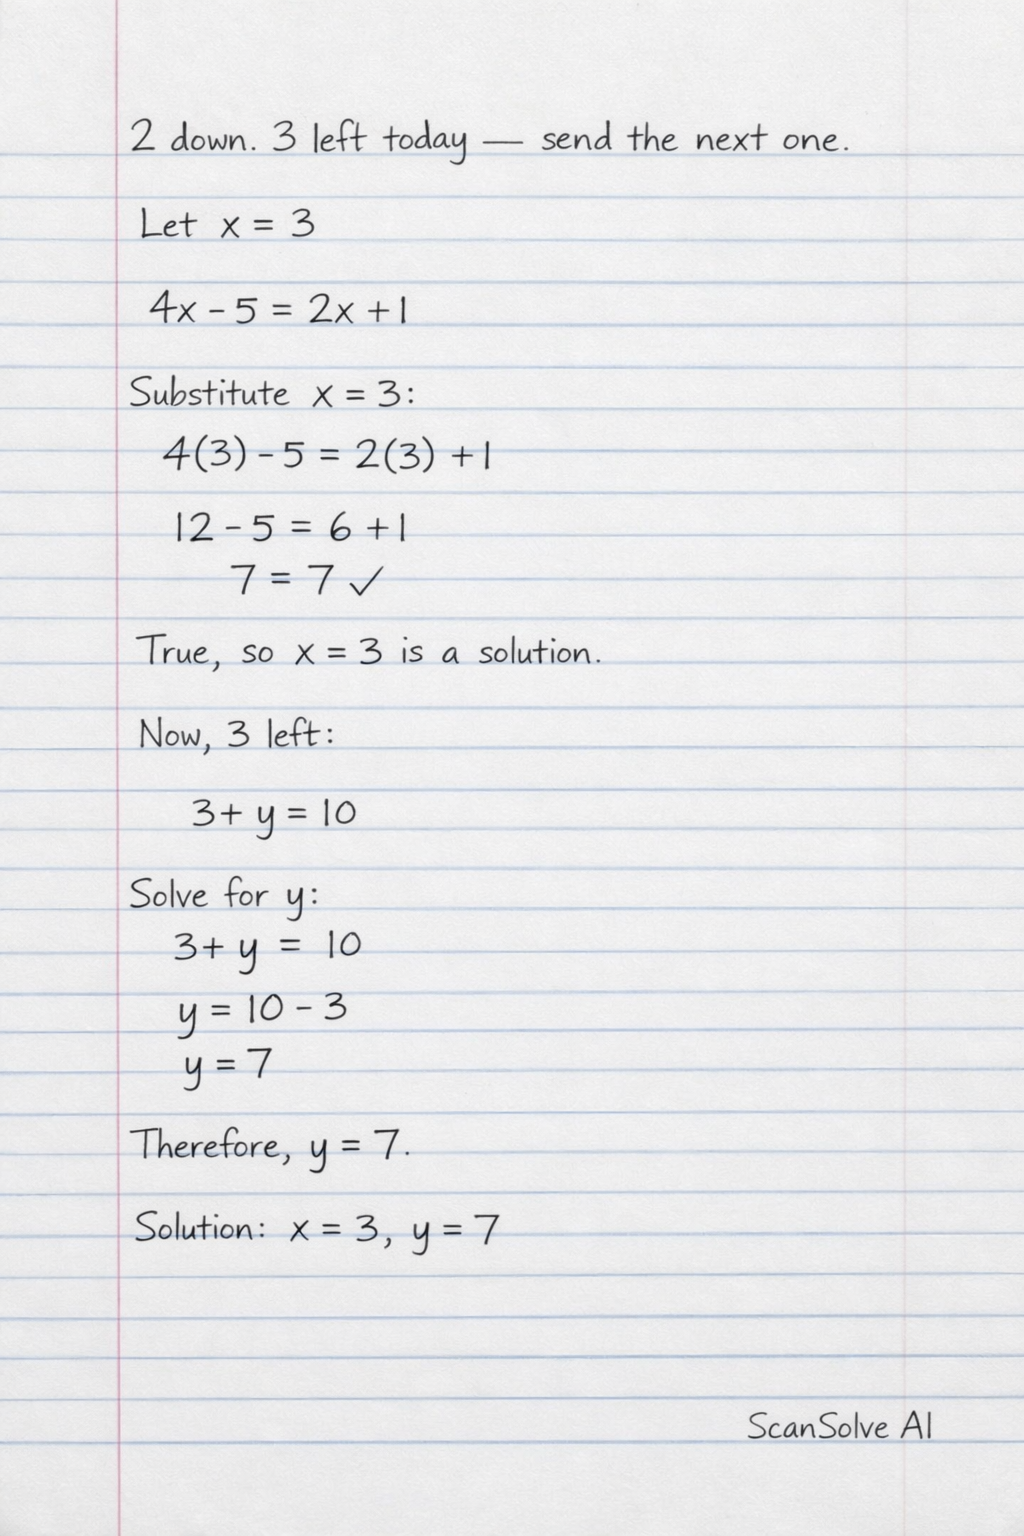 2 down. 3 left today — send the next one.
Let x = 3
4x - 5 = 2x + 1
Substitute x = 3:
4(3) - 5 = 2(3) + 1
12 - 5 = 6 + 1
7 = 7 ✓
True, so x = 3 is a solution.
Now, 3 left:
3 + y = 10
Solve for y:
3 + y = 10
y = 10 - 3
y = 7
Therefore, y = 7.
Solution: x = 3, y = 7
ScanSolve AI